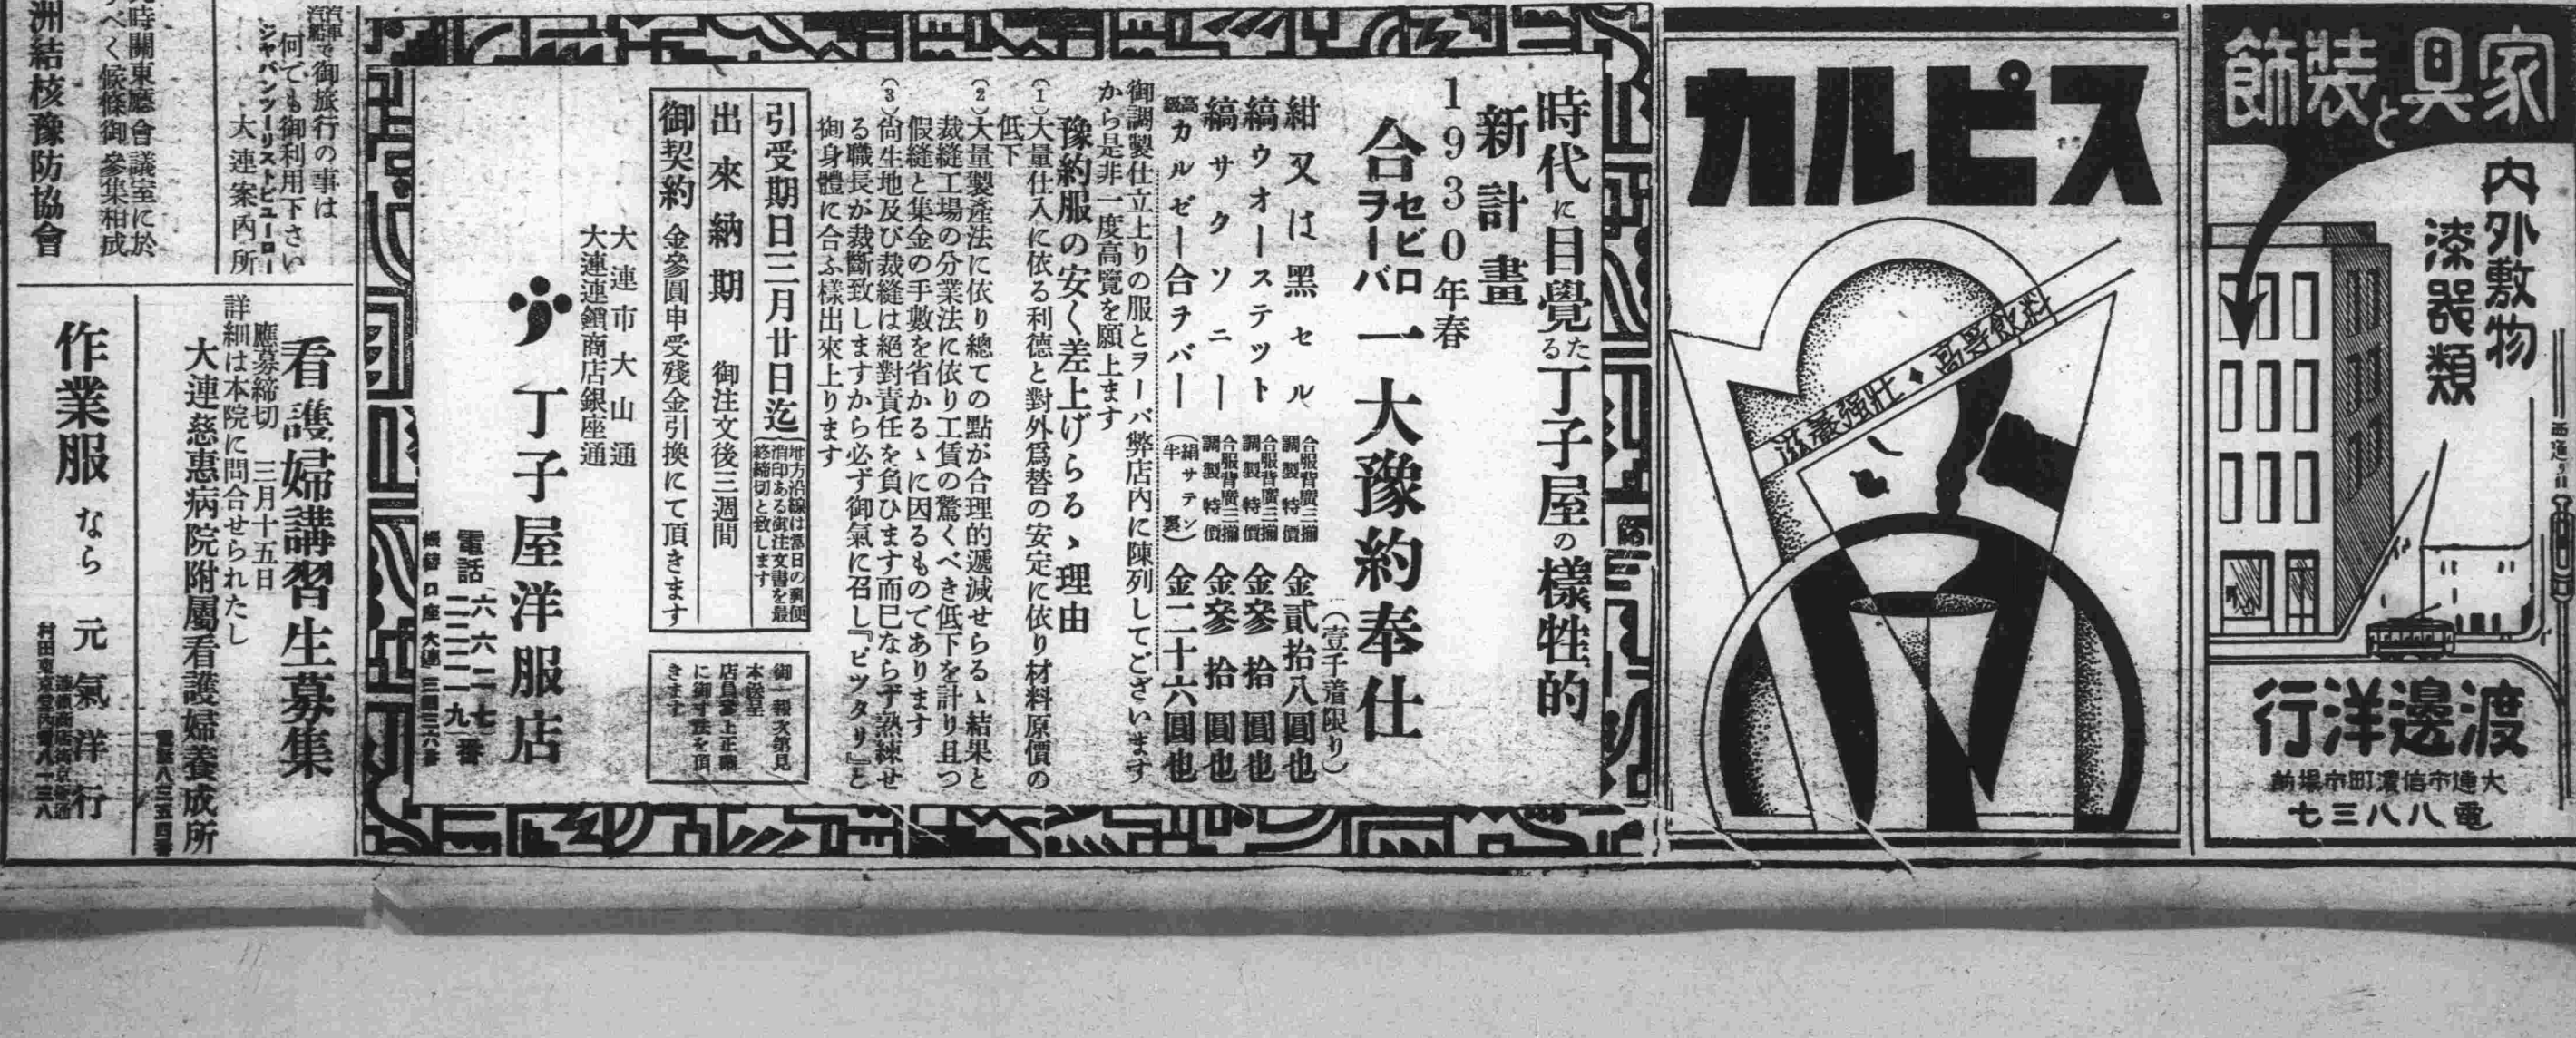 家具と装飾
内外敷物
漆器類
渡邊洋行
大連市信濃町市場前
電八八三七
カルピス
滋養强壯◆高等飲料
時代に目覺たる丁子屋の樣牲的
新計畫
1930年春
合セビロヲーバ一大豫約奉仕
(壹千着限り)
紺又は黑セル 合服背廣三揃調製特價 金貳拾八圓也
縞ウオーステツト 合服背廣三揃調製特價 金參拾圓也
縞サクソニー 合服背廣三揃調製特價 金參拾圓也
高級カルゼー合ヲバー (絹サテン半裏) 金二十六圓也
御調製仕立上りの服とヲーバ弊店内に陳列してございます
から是非一度高覽を願上ます
豫約服の安く差上げらるゝ理由
(1)大量仕入に依る利德と對外爲替の安定に依り材料原價の
低下
(2)大量製產法に依り總ての點が合理的遞減せらるゝ結果と
裁縫工場の分業法に依り工賃の驚くべき低下を計り且つ
假縫と集金の手數を省かるゝに因るものであります
(3)尙生地及び裁縫は絕對責任を負ひます而已ならず熟練せ
る職長が裁斷致しますから必ず御氣に召し『ピツタリ』と
御身體に合ふ樣出來上ります
引受期日三月廿日迄
地方沿線は當日の郵便
消印ある御注文書を最
終締切と致します
出來納期 御注文後三週間
御契約 金參圓申受殘金引換にて頂きます
御一報次第見
本送呈
店員參上正確
に御寸法を頂
きます
大連市大山通
大連連鎖商店銀座通
丁子屋洋服店
電話 六六二七 二二二一九番
振替口座大連三四三六番
汽車汽船で御旅行の事は
何でも御利用下さい
ジャパンツーリストビューロー
大連案內所
時關東廳會議室に於
べく候條御參集相成
洲結核豫防協會
看護婦講習生募集
應募締切 三月十五日
詳細は本院に問合せられたし
大連慈惠病院附屬看護婦養成所
電話八三五四番
作業服なら元氣洋行
連鎖商店街京極通
村田東京堂內電八一三八